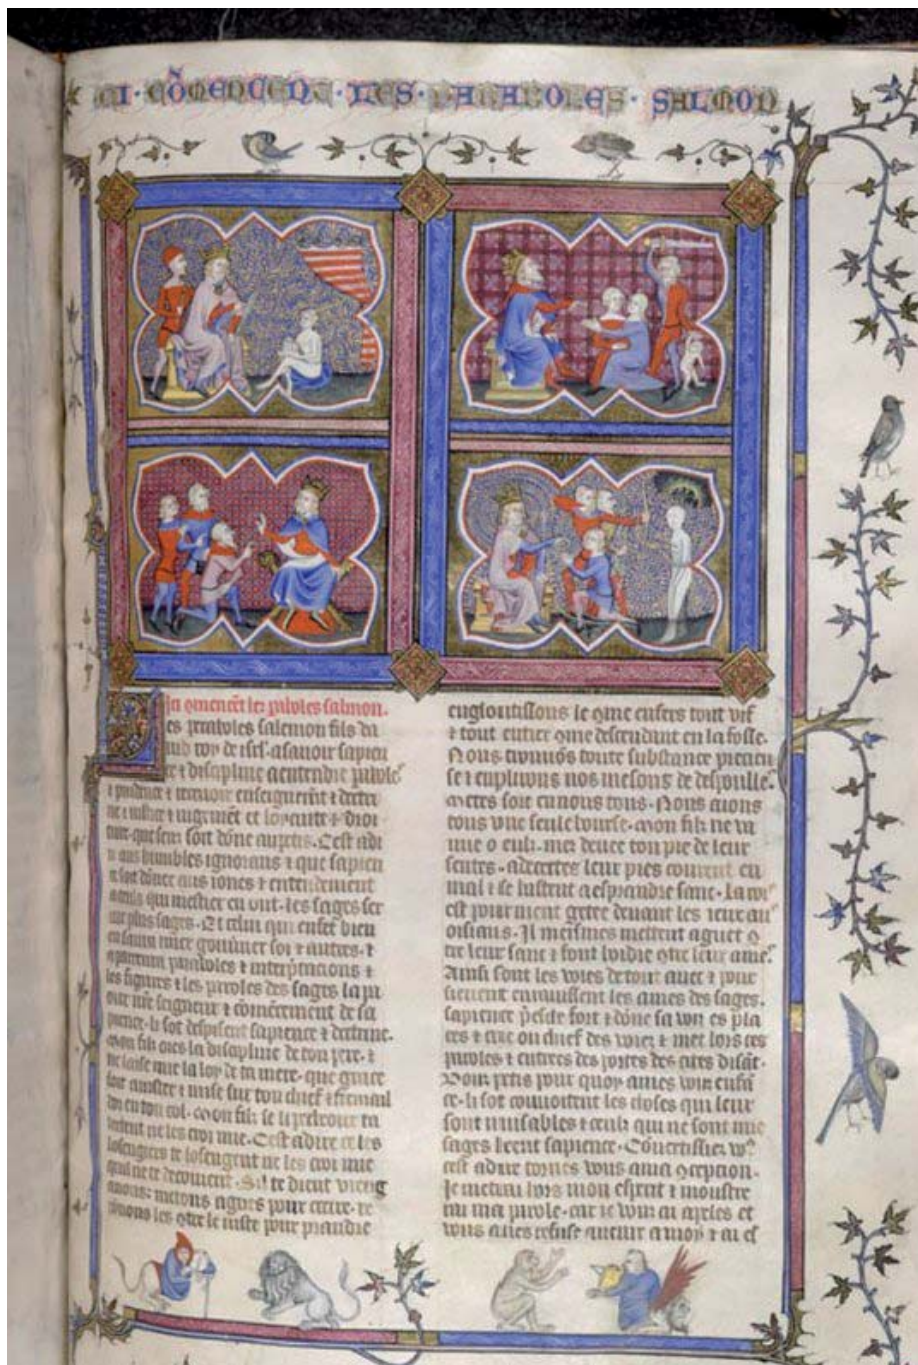 CI · CÕMENCENT · LES · PARABOLES · SALMON
les paboles salmon.
es paraboles salemon fils da
uid roy de isrl. asauoir sapien
ce t discipline a entendre parole
t prudence t receuoir enseignemēt t doctri
ne t iustice t iugemēt et loyaute t droi
ture que sens soit dōne Cest adi
humbles ignorans t que sapien
ce soit dōnee aus iones t entendement
a ceuls qui mestier en ont. les sages ser
ont plus sages. Et celui qui entēt bien
gouuner soi t autres. t
paraboles t interptacions t
les figures t les paroles des sages la pa
nre seigneur t cōmencement de sa
pience. li sot despisent sapience t doctrine.
Mon fils oies la discipline de ton pere. t
ne laisse mie la loy de ta mere. que grace
soit t mise sur ton chief t fremail
don en ton col. Mon fils se li pecheour ta
laitent ne les croi mie. Cest adire se les
losengiers te losengent ne les croi mie
quil ne te decoiuent. Sil te dient vien
auous: metons agues pour
le iuste pour prandre
engloutissons le 9me enfers tout vif
t tout entier 9me descendant en la fosse.
Nous trouuōs toute substance precieu
se t enplirons nos mesons de despoulle.
Metes sort en nous tous. Nous aions
tous vne seule bourse. Mon fils ne va
mie o euls. mes deuee ton pie de leur
sentes. adecertes leur pies courent en
mal t se hastent a espandre sanc. La roi
est pour nient getee deuant les ieux au
oisians. Il meismes mettent aguet 9
tre leur sanc t font 9tre leur ame.
Ainsi sont les voies de tout auer t pour
sieuent rauissent les ames des sages.
sapience pesche fort t dōne sa voix es pla
ces t crie ou chief des voiez t met hors ses
paroles t entrees des portes des cites disāt.
pour quoy ames vous enfā
ce. li sot couuoitent les choses qui leur
sont nuisables t ceuls qui ne sont mie
sages heent sapience. Cōuertissiez vo9
cest adire tornes vous a ma
Je metrai hors mon esprit t moustre
rai ma parole. car ie vous ai apeles et
vous aues refuse auenir a moy t ai es